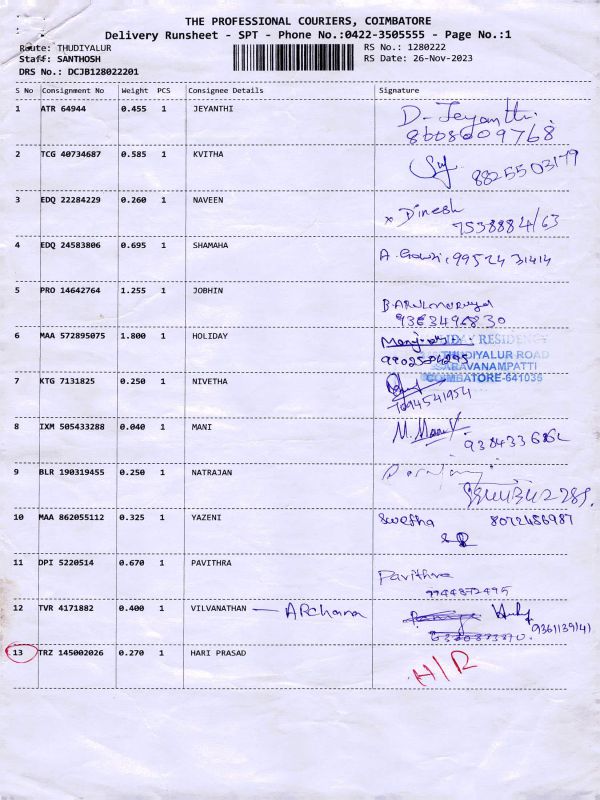 THE PROFESSIONAL COURIERS, COIMBATORE
Delivery Runsheet - SPT - Phone No.:0422-3505555 - Page No.:1
Route: THUDIYALUR RS No.: 1280222
Staff: SANTHOSH RS Date: 26-Nov-2023
DRS No.: DCJB128022201
S No Consignment No Weight PCS Consignee Details Signature
1 ATR 64944 0.455 1 JEYANTHI D. Jeyanthi
8608609768
2 TCG 40734687 0.585 1 KVITHA
8825503179
3 EDQ 22284229 0.260 1 NAVEEN x Dinesh
7538884163
4 EDQ 24583806 0.695 1 SHAMAHA A. Gowri, 9952431414
5 PRO 14642764 1.255 1 JOBHIN
6 MAA 572895075 1.800 1 HOLIDAY RESIDENCY
THUDIYALUR ROAD
SARAVANAMPATTI
COIMBATORE-641035
7 KTG 7131825 0.250 1 NIVETHA
7094541954
8 IXM 505433288 0.040 1 MANI M. Mani
9 BLR 190319455 0.250 1 NATRAJAN
10 MAA 862055112 0.325 1 YAZENI Swetha 8072486987
11 DPI 5220514 0.670 1 PAVITHRA Pavithra
9944372495
12 TVR 4171882 0.400 1 VILVANATHAN — ARchana
9361139141
13 TRZ 145002026 0.270 1 HARI PRASAD H/R